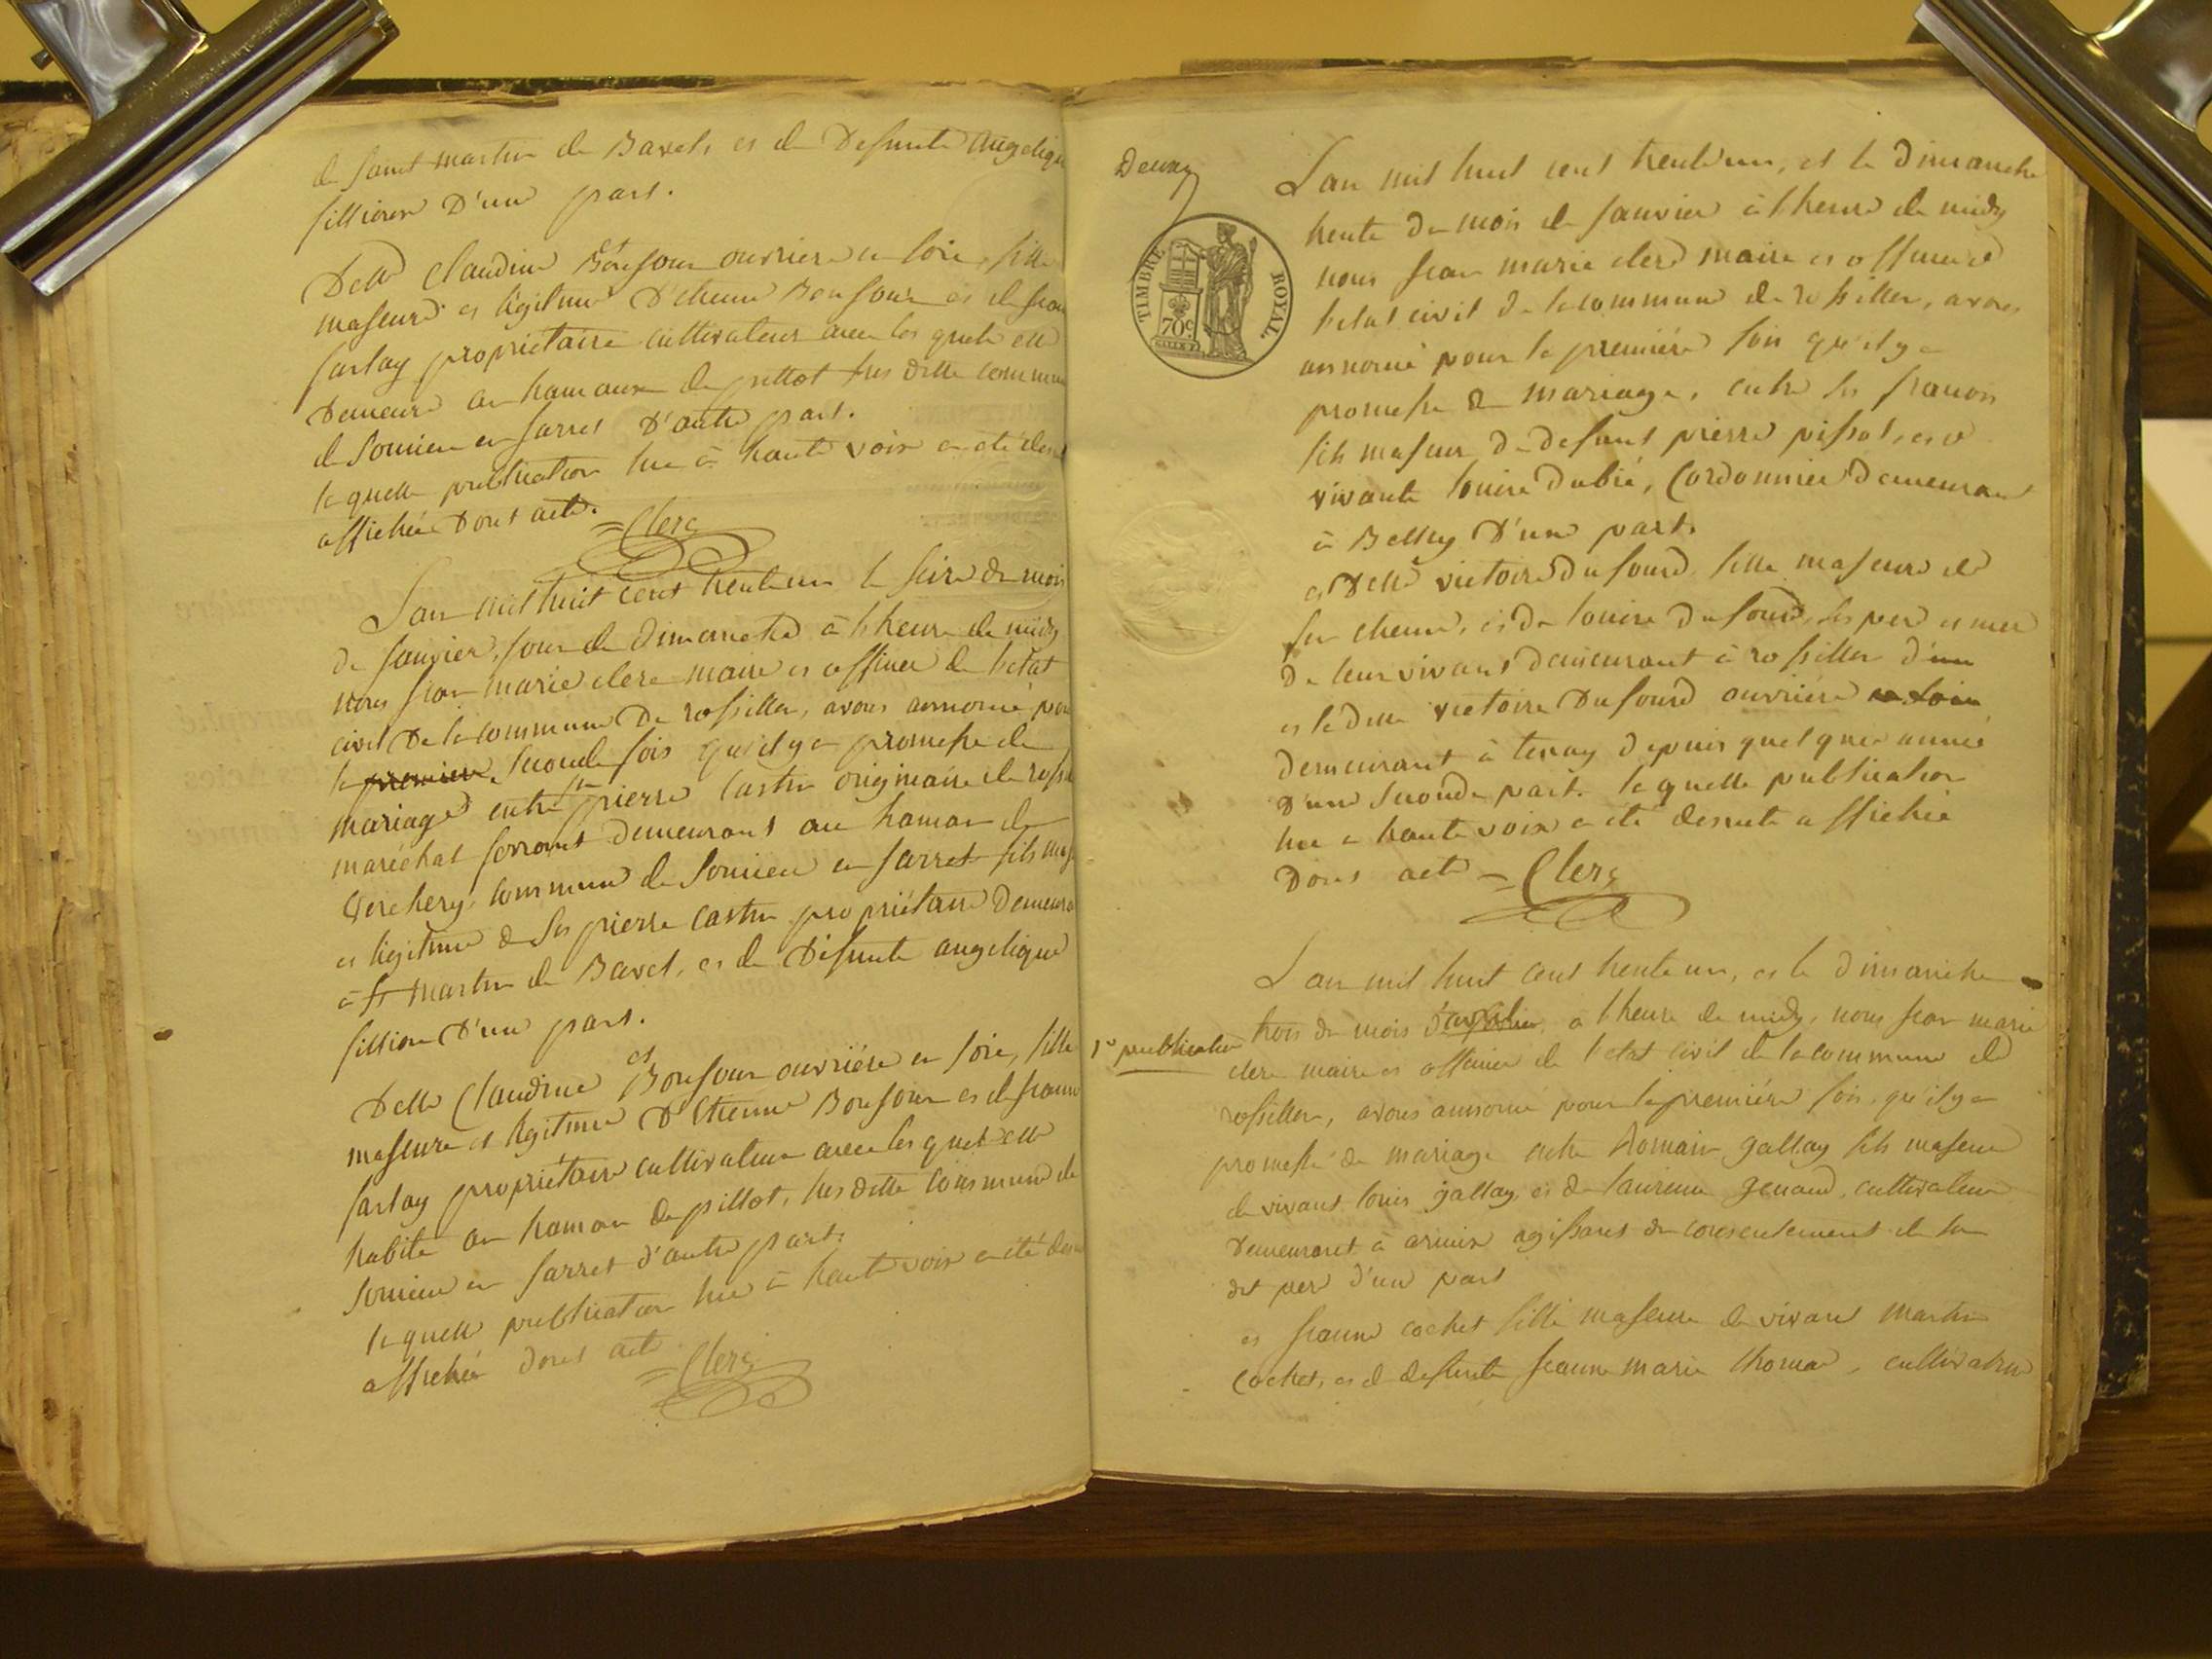 de saint martin de Bavel, et de defunte angelique
fillion D'une part.
et
Delle Claudine Bonjour ouvriere en soie, fille
majeure et legitime D'etienne Bonjour et de jeanne
jarlay propriétaire cultivateur avec les quels elle
Demeure au hamaux de pillot sus ditte commune
de Somieu en jarret D'autre part.
la quelle publication lue à haute voix a été de suite
affichée Dont acte. = Clerc
L'an mil huit cent trente un le seize du mois
de janvier, jour de dimanche à l'heure de midy
nous jean marie clerc maire et officier de l'etat
civil De la commune De rossillon, avons annoncé pour
la premiere, seconde fois qu'il y a promesse de
mariage entre sr pierre Castin originaire de
maréchal ferrant demeurant au hamau de
commune de Somieu en jarret fils
et legitime de Sr pierre Castin propriétaire Demeurant
à St martin de Bavel, et de Défunte angelique
fillion D'une part.
et
Delle Claudine Bonjour ouvriére en soie, fille
majeure et legitime D'Etienne Bonjour et de jeanne
jarlay propriétaire cultivateur avec les quels elle
habite au hamau de pillot, sus ditte commune de
Somieu en jarret d'autre part.
la quelle publication lue à haute voix a été de
affichée dont acte = Clerc
TIMBRE ROYAL.
70c
L'an mil huit cent trente un, et le Dimanche
trente du mois de janvier à l'heure de midy
nous jean marie clerc maire et officier de
l'etat civil de la commune de rossillon, avons
annoncé pour la premiére fois qu'il y a
promesse de mariage, entre sr francois
fils majeur de defunt pierre pissot, et de
vivante louise Dubié, Cordonnier Demeurant
à Belley D'une part.
et Delle victoire Dufour fille majeure de
feu etienne, et de louise Dufour, ses pere et mere
De leur vivant demeurant à rossillon d'une
et la Delle victoire Dufour ouvriére en soie
demeurant à tenay depuis quelques année
D'une seconde part. la quelle publication
lue a haute voix a été desuite affichée
Dont acte = Clerc
L'an mil huit cent trente un, et le dimanche
1e publication
trois du mois d'avril a l'heure de midy, nous jean marie
clerc maire et officier de l'etat civil de la commune de
rossillon, avons annoncé pour la premiére fois, qu'il y a
promesse de mariage entre Romain gallay fils majeur
de vivant louis gallay et de laurence genaud, cultivateur
Demeurant à armix agissant du consentement de son
dit pere d'une part
et jeanne cochet fille majeure de vivant martin
Cochet, et de defunte jeanne marie thomas, cultivateur